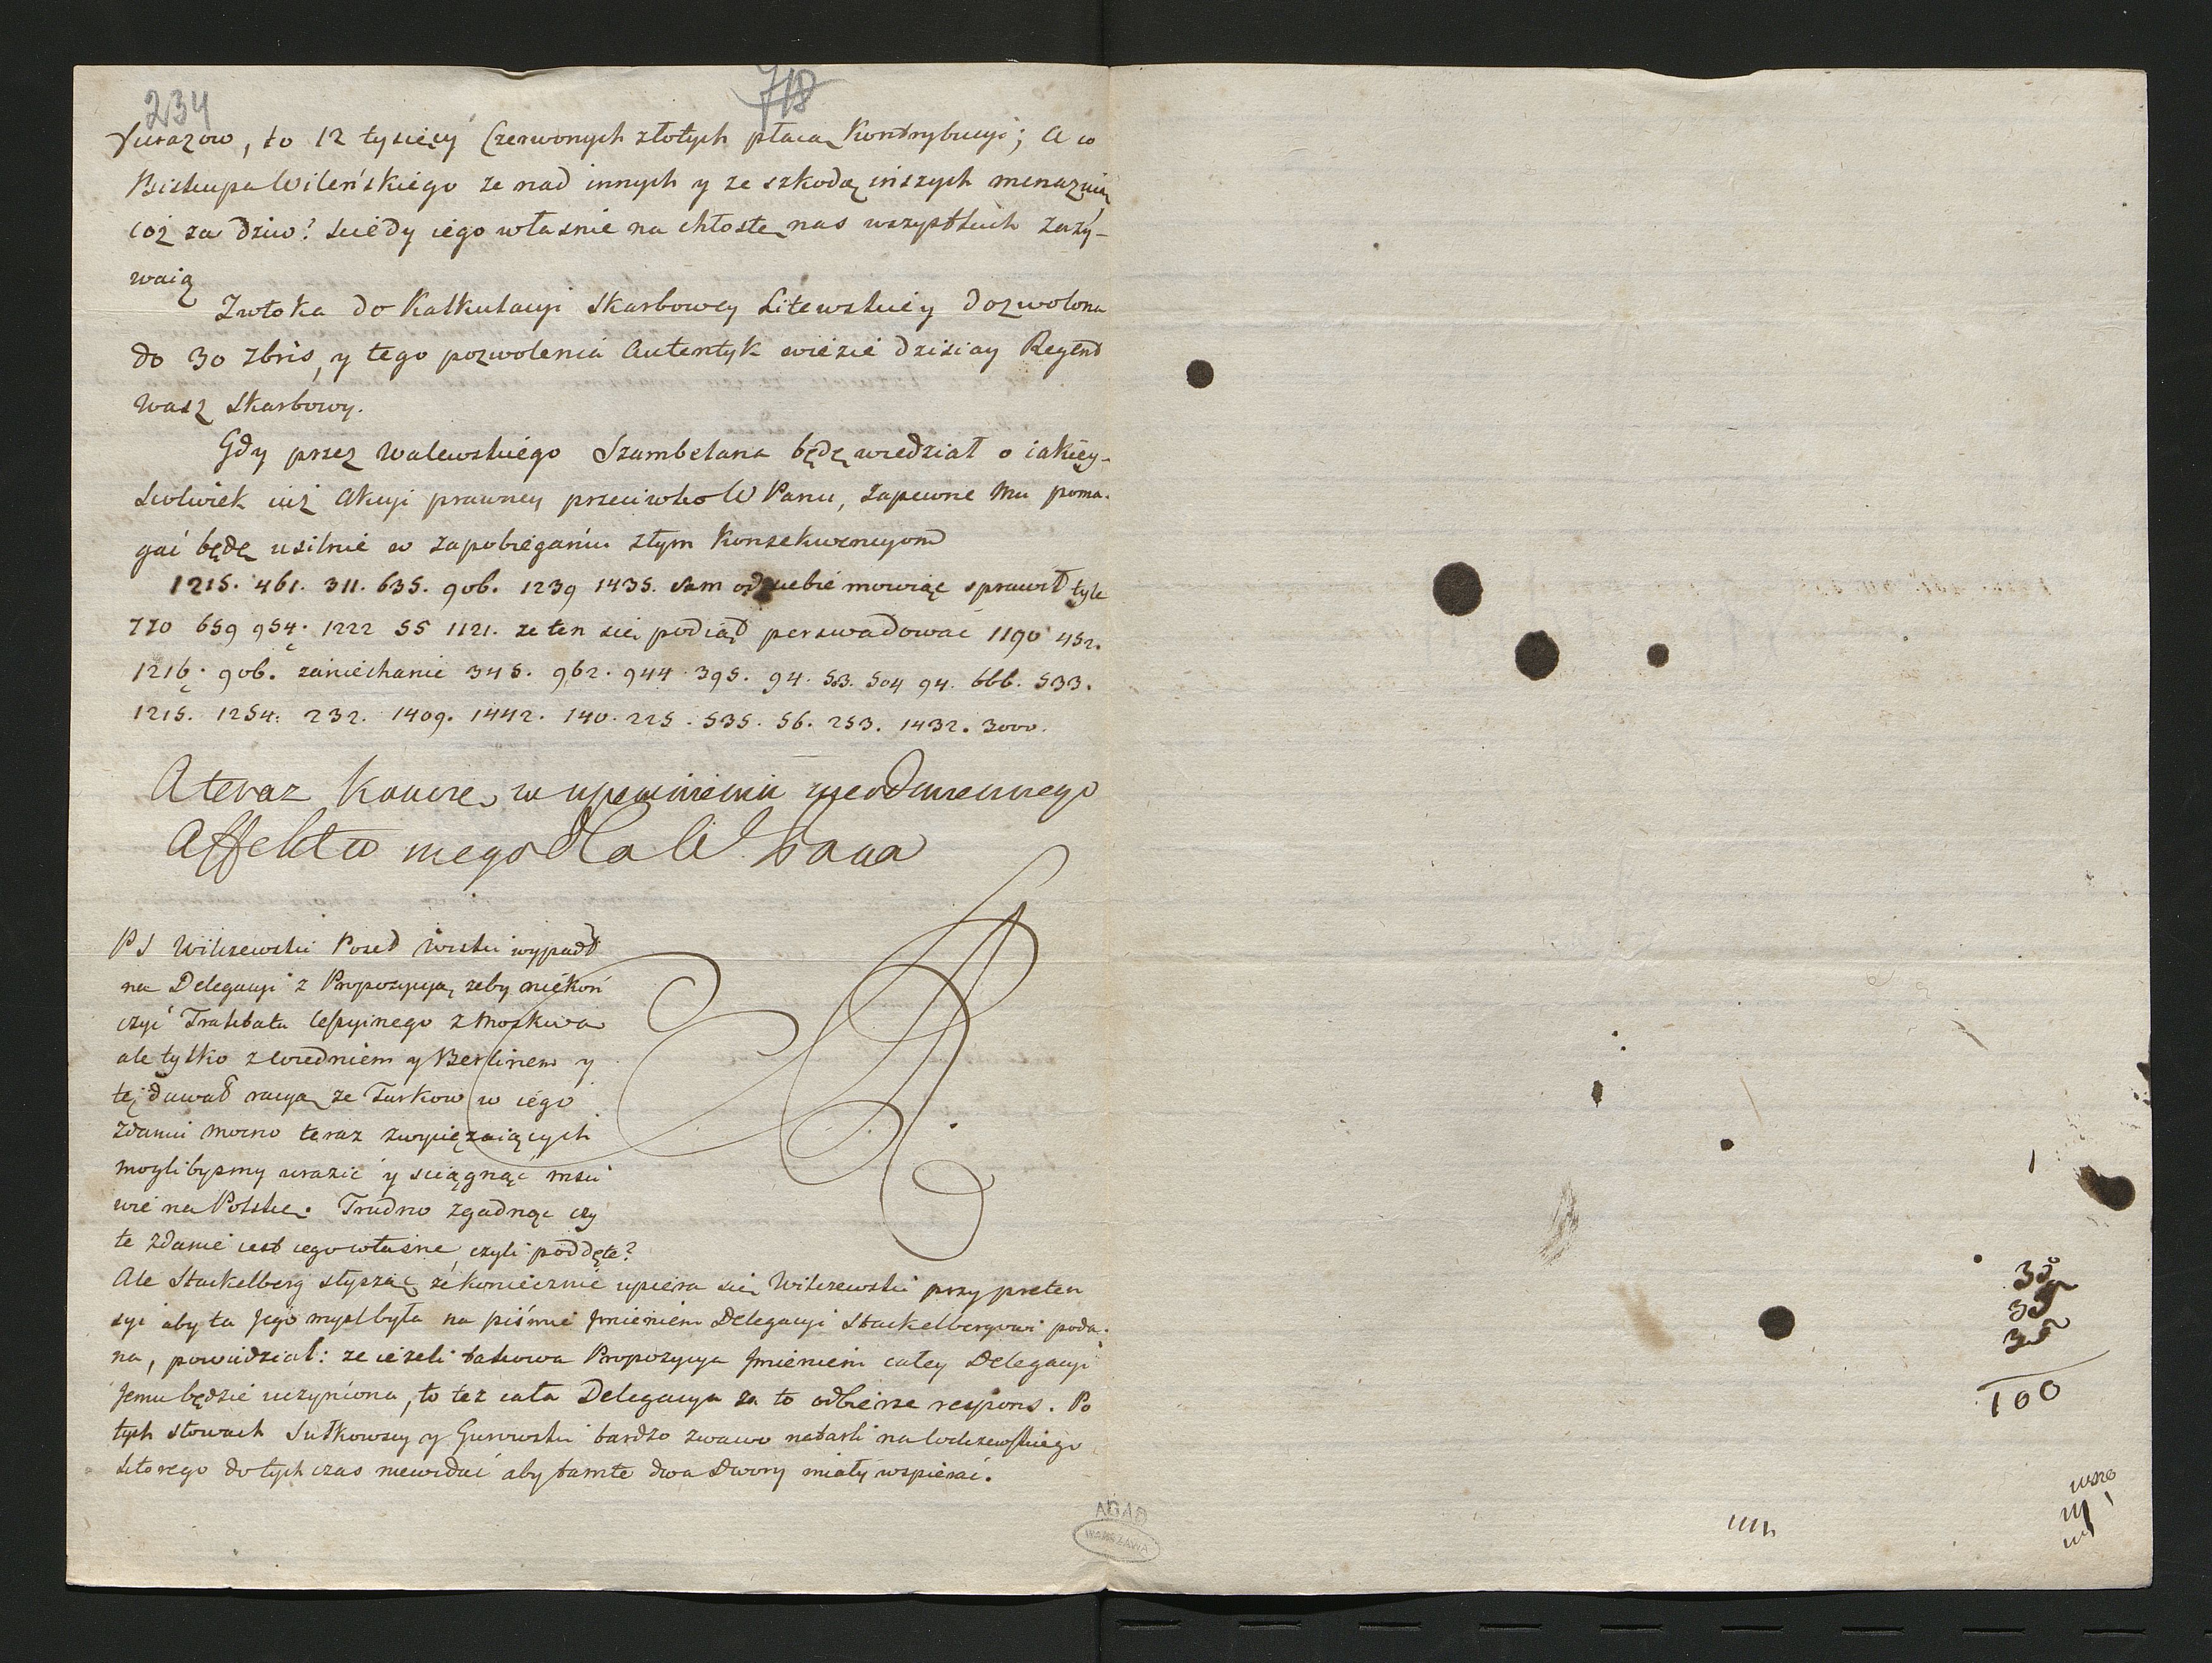 234
718
razow, to 12 tysięcy Czerwonych złotych płacą Kontrybucyi; A co
Biskupa Wileńskiego ze nad innych y ze szkodą inszych menazuią
coż za dziw? kiedy iego własnie na chłostę nas wszystkich zazy-
waią
Zwłoka do Kalkulacyi Skarbowey Litewskiey dozwolona
do 30 Xbris, y tego pozwolenia Autentyk wiezie dzisiay Regent
Wasz Skarbowy.
Gdy przez Walewskiego Szambelana będę wiedział o iakiey-
kolwiek iuż Akcyi prawney przeciwko W Panu, zapewne mu poma-
gać będę usilnie w zapobieganiu złym Konsekwencyom
1215. 461. 311. 635. 906. 1239 1435. sam od siebie mowiąc sprawił tyle
770 659 954. 1222 55 1121. ze ten sie podiął perswadowac 1190 452.
1216. 906. zaniechanie 345. 962. 944. 395. 94. 53. 504 94. 666. 533.
1215. 1254. 232. 1409. 1442. 140. 225. 535. 56. 253. 1432. 3000.
A teraz koncze, w upewnieniu nieodmiennego
Affektu mego dla W Pana
PS Wilczewski Poseł Wiski wypadł
na Delegacyi z Propozycyą, zeby niekoń
czyć Traktatu Cessyinego z Moskwą
ale tylko z Wiedniem y Berlinem y
tę dawał racyą ze Turkow w iego
zdaniu mocno teraz zwyciężaiących
moglibysmy urazic y sciągnąć msci
wie na Polskę. Trudno zgadnąc czy
te zdanie iest iego własne, czyli poddęte?
Ale Stackelberg słysząc, że koniecznie upiera się Wilczewski przy preten
syi aby ta Jego mysl była na pismie Imieniem Delegacyi Stackelbergowi poda-
na, powiedział: ze ieżeli takowa Propozycya Imieniem całey Delegacyi
Jemu będzie uczyniona, to tez cała Delegacya za to odbierze respons. Po
tych słowach Sułkowscy y Gurowski bardzo zwawo natarli na Wilczewskiego
ktorego dotychczas niewidać aby tamte dwa Dwory miały wspierać.
AGAD
WARSZAWA
100